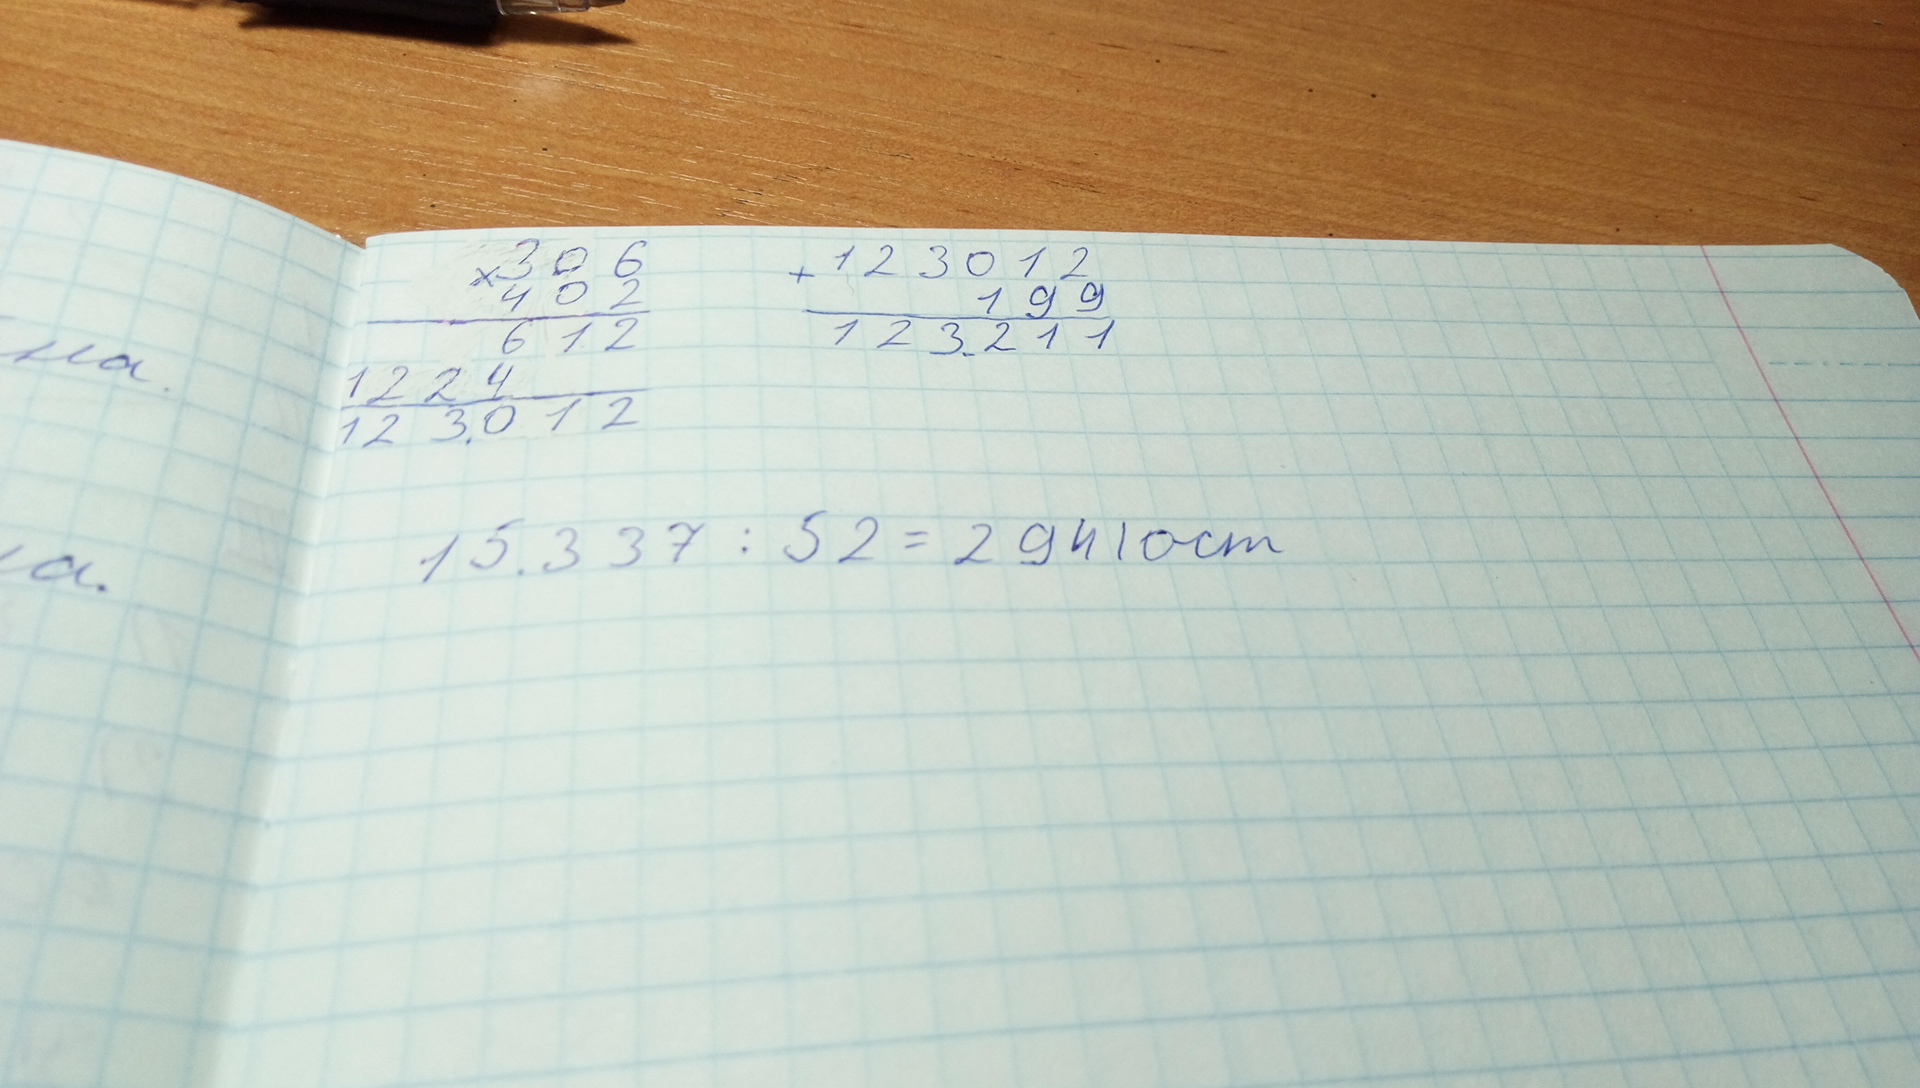 на.
×306
402
612
1224
123.012
+123012
199
123.211
15.337 : 52 = 294 | ост